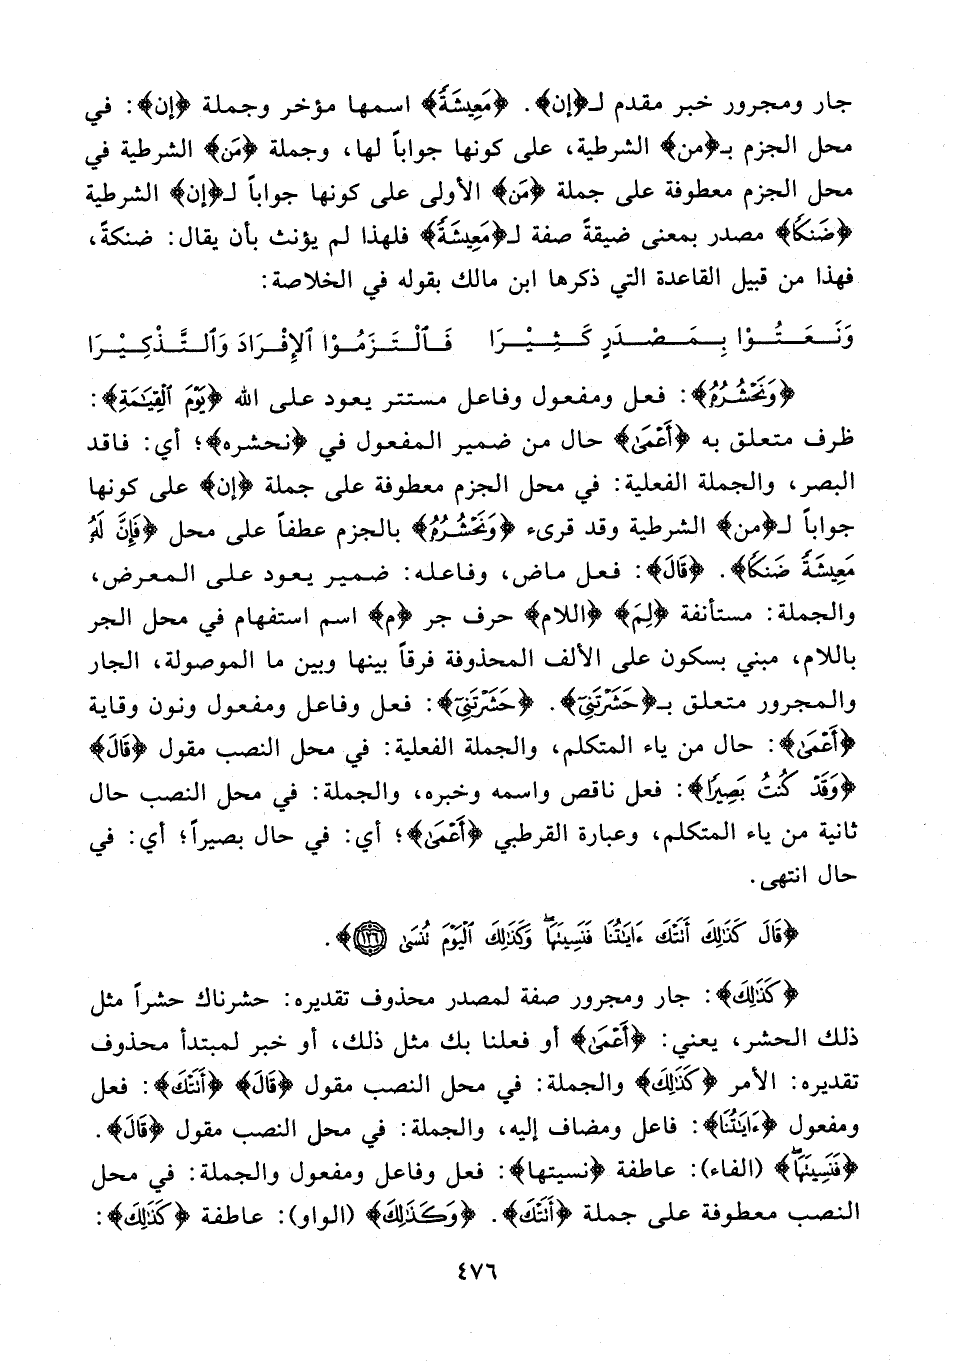 جار ومجرور خبر مقدم لـ﴿إن﴾. ﴿مَعِيشَةً﴾ اسمها مؤخر وجملة ﴿إن﴾: في
محل الجزم بـ﴿من﴾ الشرطية، على كونها جواباً لها، وجملة ﴿مَن﴾ الشرطية في
محل الجزم معطوفة على جملة ﴿مَن﴾ الأولى على كونها جواباً لـ﴿إن﴾ الشرطية
﴿ضَنكًا﴾ مصدر بمعنى ضيقةً صفة لـ﴿مَعِيشَةً﴾ فلهذا لم يؤنث بأن يقال: ضنكةً،
فهذا من قبيل القاعدة التي ذكرها ابن مالك بقوله في الخلاصة:
وَنَـعَـتُـوْا بِـمَـصْـدَرٍ كَـثِـيْـرَا فَـٱلْـتَـزَمُـوْا ٱلإِفْـرَادَ وَٱلـتَّـذْكِـيْـرَا
﴿وَنَحْشُرُهُۥ﴾: فعل ومفعول وفاعل مستتر يعود على الله ﴿يَوْمَ ٱلْقِيَٰمَةِ﴾:
ظرف متعلق به ﴿أَعْمَىٰ﴾ حال من ضمير المفعول في ﴿نحشره﴾؛ أي: فاقد
البصر، والجملة الفعلية: في محل الجزم معطوفة على جملة ﴿إن﴾ على كونها
جواباً لـ﴿من﴾ الشرطية وقد قرىء ﴿وَنَحْشُرُهُۥ﴾ بالجزم عطفاً على محل ﴿فَإِنَّ لَهُۥ
مَعِيشَةً ضَنكًا﴾. ﴿قَالَ﴾: فعل ماض، وفاعله: ضمير يعود على المعرض،
والجملة: مستأنفة ﴿لِمَ﴾ ﴿اللام﴾ حرف جر ﴿م﴾ اسم استفهام في محل الجر
باللام، مبني بسكون على الألف المحذوفة فرقاً بينها وبين ما الموصولة، الجار
والمجرور متعلق بـ﴿حَشَرْتَنِىٓ﴾. ﴿حَشَرْتَنِىٓ﴾: فعل وفاعل ومفعول ونون وقاية
﴿أَعْمَىٰ﴾: حال من ياء المتكلم، والجملة الفعلية: في محل النصب مقول ﴿قَالَ﴾
﴿وَقَدْ كُنتُ بَصِيرًا﴾: فعل ناقص واسمه وخبره، والجملة: في محل النصب حال
ثانية من ياء المتكلم، وعبارة القرطبي ﴿أَعْمَىٰ﴾؛ أي: في حال بصيراً؛ أي: في
حال انتهى.
﴿قَالَ كَذَٰلِكَ أَتَتْكَ ءَايَٰتُنَا فَنَسِينَهَا ۖ وَكَذَٰلِكَ ٱلْيَوْمَ تُنسَىٰ ١٢٦﴾.
﴿كَذَٰلِكَ﴾: جار ومجرور صفة لمصدر محذوف تقديره: حشرناك حشراً مثل
ذلك الحشر، يعني: ﴿أَعْمَىٰ﴾ أو فعلنا بك مثل ذلك، أو خبر لمبتدأ محذوف
تقديره: الأمر ﴿كَذَٰلِكَ﴾ والجملة: في محل النصب مقول ﴿قَالَ﴾ ﴿أَتَتْكَ﴾: فعل
ومفعول ﴿ءَايَٰتُنَا﴾: فاعل ومضاف إليه، والجملة: في محل النصب مقول ﴿قَالَ﴾.
﴿فَنَسِينَهَا ۖ﴾ (الفاء): عاطفة ﴿نسيتها﴾: فعل وفاعل ومفعول والجملة: في محل
النصب معطوفة على جملة ﴿أَتَتْكَ﴾. ﴿وَكَذَٰلِكَ﴾ (الواو): عاطفة ﴿كَذَٰلِكَ﴾:
٤٧٦